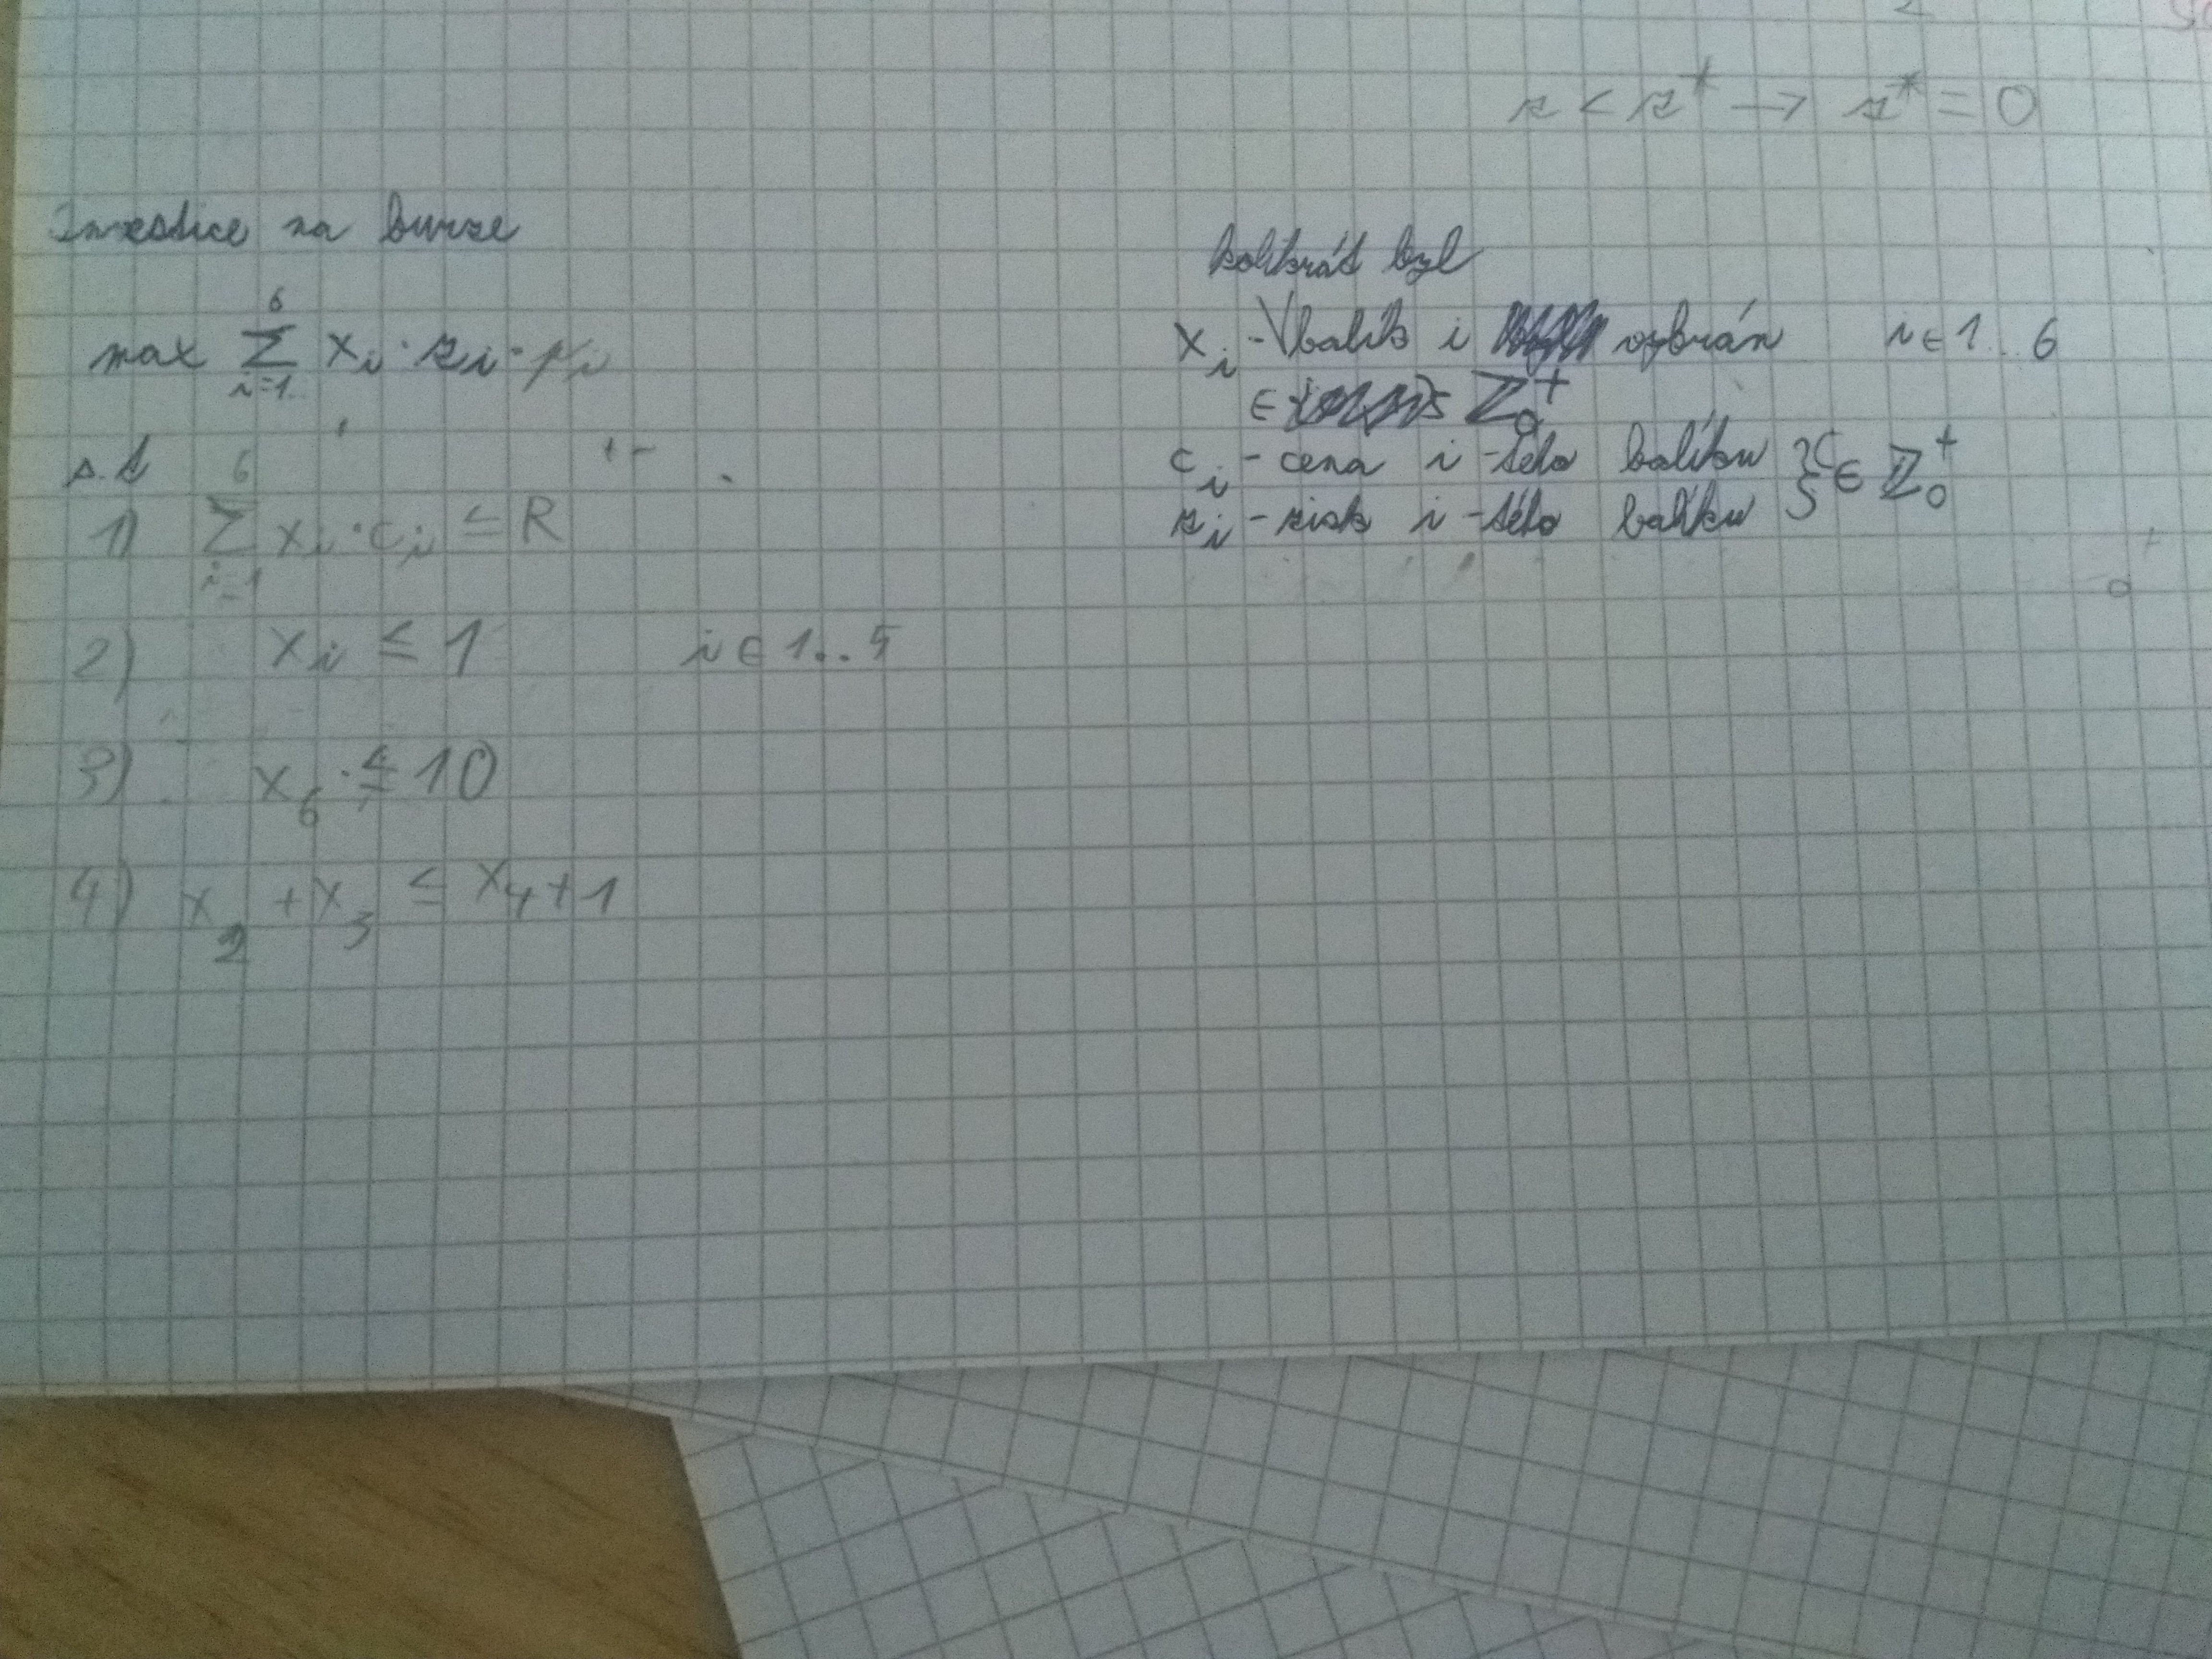 z < z* → z* = 0
Investice na burze
max ∑_{i=1}^{6} x_i · z_i · p_i
s.t
1) ∑_{i=1}^{6} x_i · c_i ≤ R
2) x_i ≤ 1 i ∈ 1..5
3) x_6 ≤ 10
4) x_2 + x_3 ≤ x_4 + 1
kolikrát byl
x_i - balík i vybrán i ∈ 1..6
∈ Z_0^+
c_i - cena i-tého balíku } ∈ Z_0^+
z_i - zisk i-tého balíku